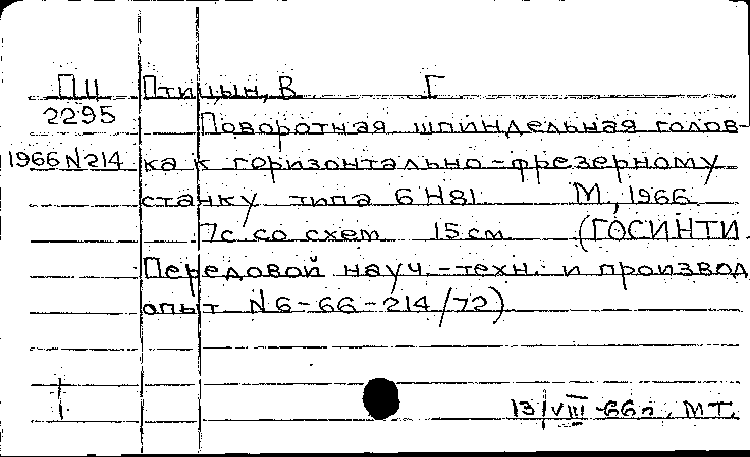 ПII Птицын, В Г
2295 Поворотная шпиндельная голов-
1966 N 214 ка к горизонтально-фрезерному
станку типа 6Н81. М, 1966
7с. со схем 15 см (ГОСИНТИ
Передовой науч.-техн. и производ
опыт N 6-66-214/72)
13/VIII-66г. МТ.